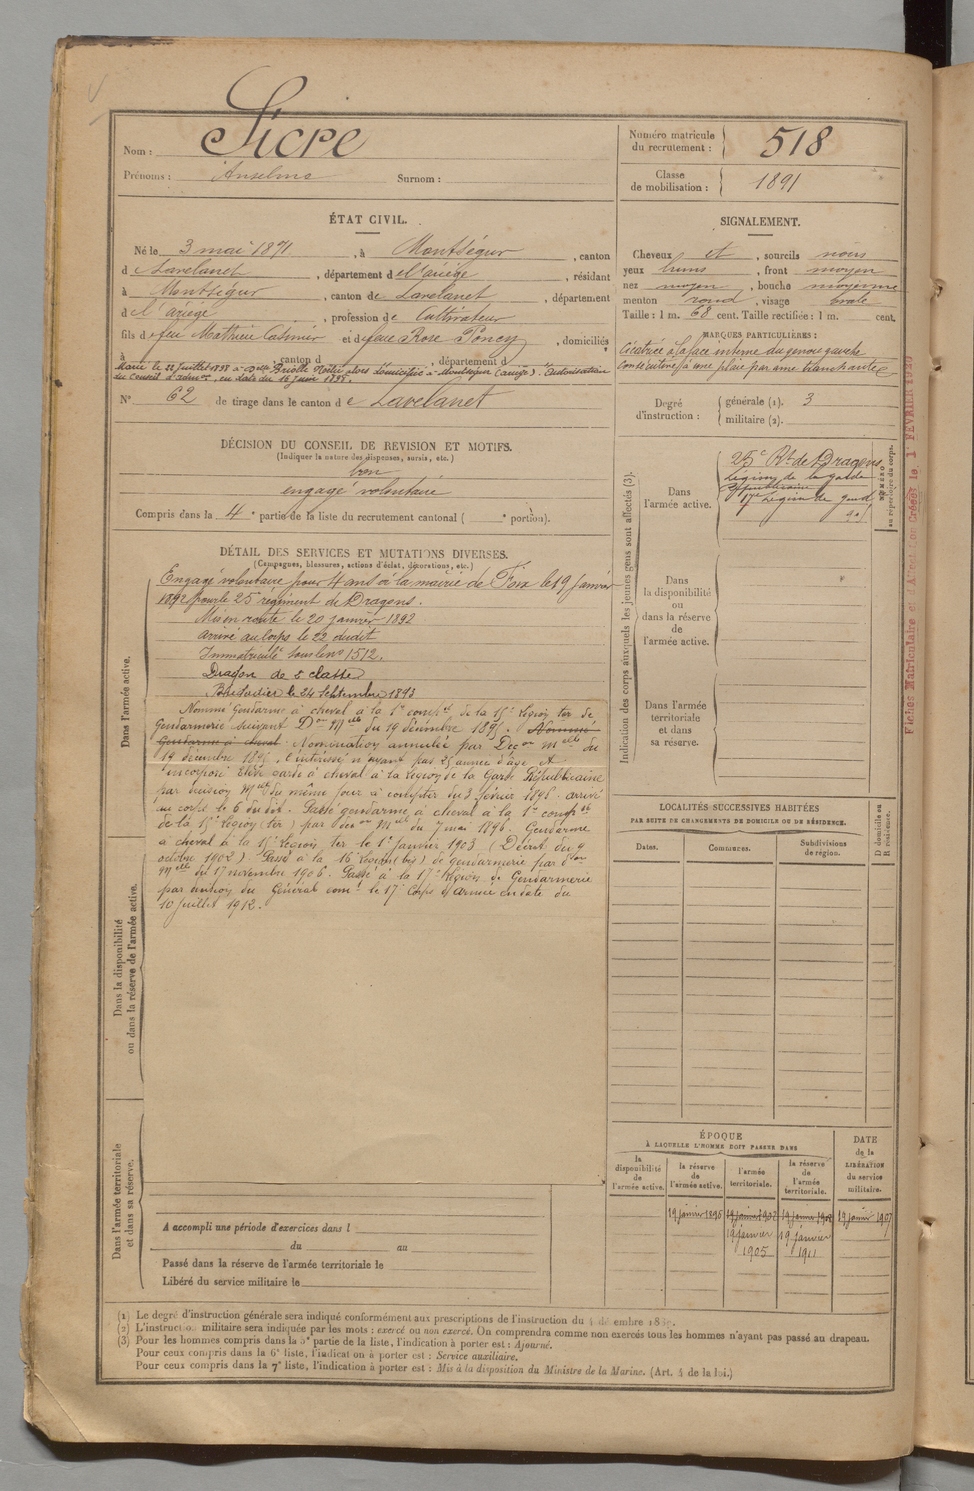 Nom : Sicre
Prénoms : Anselme Surnom :
Numéro matricule du recrutement : 518
Classe de mobilisation : 1891
ÉTAT CIVIL.
Né le 3 mai 1871, à Montségur, canton
d Lavelanet, département de l'ariège, résidant
à Montségur, canton de Lavelanet, département
d l'ariège, profession de Cultivateur
fils de feu Mathieu Casimir et de feue Rose Poncy, domiciliés
à , canton d , département d
Marié le 22 Juillet 1898 à domicilié à Montségur (ariège). Autorisation
du Conseil d'admon, en date du 16 Juin 1898.
N° 62 de tirage dans le canton de Lavelanet
SIGNALEMENT.
Cheveux et, sourcils noirs
yeux bruns, front moyen
nez moyen, bouche moyenne
menton rond, visage ovale
Taille : 1 m. 68 cent. Taille rectifiée : 1 m. cent.
MARQUES PARTICULIÈRES :
Cicatrice à la face interne du genou gauche
Consécutive à une plaie par arme tranchante
Degré d'instruction : générale (1). 3
militaire (2).
DÉCISION DU CONSEIL DE REVISION ET MOTIFS.
(Indiquer la nature des dispenses, sursis, etc.)
bon
engagé volontaire
Compris dans la 4e partie de la liste du recrutement cantonal ( e portion).
DÉTAIL DES SERVICES ET MUTATIONS DIVERSES.
(Campagnes, blessures, actions d'éclat, décorations, etc.)
Dans l'armée active.
Engagé volontaire pour 4 ans à la mairie de Foix le 19 Janvier
1892 pour le 25e régiment de Dragons.
Mis en route le 20 janvier 1892
arrivé au corps le 22 dudit
Immatriculé sous le no 1512.
Dragon de 2e classe
Brigadier le 24 Septembre 1893
Nommé Gendarme à cheval à la 1re compie de la 15e Légion ter de
Gendarmerie suivant Don Mlle du 19 décembre 1895. Nommé
Gendarme à cheval. Nomination annulée par Décon mlle du
19 décembre 1895, l'intéressé n'ayant pas 25 années d'âge. A
incorporé Élève garde à cheval à la Légion de la Garde Républicaine
par décision Mlle du même jour à compter du 3 février 1896. arrivé
au corps le 6 du dit. Passé gendarme à cheval à la 1re compie
de la 15e Légion (ter) par décon Mlle du 7 mai 1896. Gendarme
à cheval à la 15e Légion ter le 1er janvier 1903 (Décret du 9
octobre 1902). Passé à la 16e Légion (bis) de gendarmerie par don
Mlle du 17 novembre 1906. Passé à la 17e Légion de Gendarmerie
par du Général comt le 17e Corps d'armée en date du
10 Juillet 1912.
Dans la disponibilité
ou dans la réserve de l'armée active.
Dans l'armée territoriale
et dans sa réserve.
A accompli une période d'exercices dans l
du au
Passé dans la réserve de l'armée territoriale le
Libéré du service militaire le
Indication des corps auxquels les jeunes gens sont affectés (3).
NUMÉRO
au répertoire du corps.
Dans l'armée active.
25e Rt de Dragons
Légion de la garde
Républicaine
17e Légion de gend
Dans la disponibilité ou dans la réserve de l'armée active.
Dans l'armée territoriale et dans sa réserve.
Fiches Matriculaire et d'Affectation Créées le 1 FEVRIER
LOCALITÉS SUCCESSIVES HABITÉES
PAR SUITE DE CHANGEMENTS DE DOMICILE OU DE RÉSIDENCE.
Dates. Communes. Subdivisions de région. D domicile ou R résidence.
ÉPOQUE
À LAQUELLE L'HOMME DOIT PASSER DANS
DATE de la LIBÉRATION du service militaire.
la disponibilité de l'armée active. la réserve de l'armée active. l'armée territoriale. la réserve de l'armée territoriale.
19 janvier 1895 19 janvier 1902 19 janvier 1908 19 janvier 1917
19 janvier 1905 19 janvier 1911
(1) Le degré d'instruction générale sera indiqué conformément aux prescriptions de l'instruction du 4 décembre 1889.
(2) L'instruction militaire sera indiquée par les mots : exercé ou non exercé. On comprendra comme non exercés tous les hommes n'ayant pas passé au drapeau.
(3) Pour les hommes compris dans la 5e partie de la liste, l'indication à porter est : Ajourné.
Pour ceux compris dans la 6e liste, l'indication à porter est : Service auxiliaire.
Pour ceux compris dans la 7e liste, l'indication à porter est : Mis à la disposition du Ministre de la Marine. (Art. 4 de la loi.)